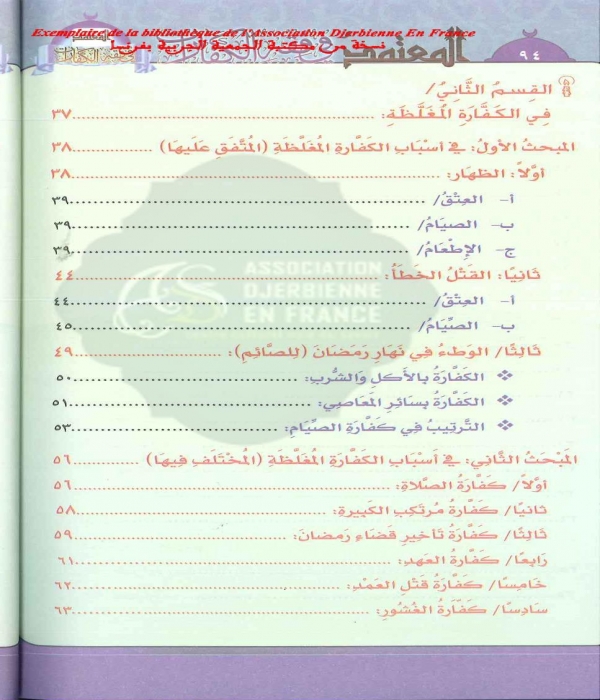 Exemplaire de la bibliothèque de l'Association Djerbienne En France
نسخة من مكتبة الجمعية الجربية بفرنسا
المعتمد في فقه الكفارات
٩٤
القِسمُ الثَّانِيُ/
فِي الكَفَّارَةِ المُغَلَّظَةِ:................٣٧
المبحثُ الأولُ: في أسْبَابِ الكَفَّارةِ المُغلَّظَةِ (المُتَّفَقِ عَليهَا) ................٣٨
أوّلاً: الظهَار:................٣٨
أ- العِتْقُ/ ................٣٩
ب- الصيَامُ/ ................٣٩
ج- الإطْعَامُ/ ................٣٩
ثَانِيًا: القَتْلُ الخَطَأُ:................٤٤
أ- العِتْقُ/ ................٤٤
ب- الصِّيَامُ/ ................٤٥
ثَالِثًا/ الوَطءُ فِي نَهَارِ رَمَضَانَ (لِلصَّائِمِ):................٤٩
❖ الكَفَّارَةُ بِالأَكلِ وَالشُّربِ: ................٥٠
❖ الكَفَّارَةُ بِسَائِرِ المَعَاصِي: ................٥١
❖ التَّرتِيبُ فِي كَفَّارَةِ الصِّيَامِ: ................٥٣
المَبْحَثُ الثَّانِي: في أَسبَابِ الكَفَّارَةِ المُغَلَّظَةِ (المُخْتَلَفِ فِيهَا) ................٥٦
أوّلاً/ كَفَّارَةُ الصَّلاةِ: ................٥٦
ثَانيًا/ كَفَّارَةُ مُرتَكِبِ الكَبِيرةِ: ................٥٨
ثَالِثًا/ كَفَّارَةُ تَأخِيرِ قَضَاءِ رَمضَانَ: ................٥٩
رَابِعًا/ كَفَّارةُ العَهدِ: ................٦١
خَامِسًا/ كَفَّارَةُ قَتْلِ العَمْدِ: ................٦٢
سَادِسًا/ كَفَّارَةُ العُشُورِ: ................٦٣
ASSOCIATION
DJERBIENNE
EN FRANCE